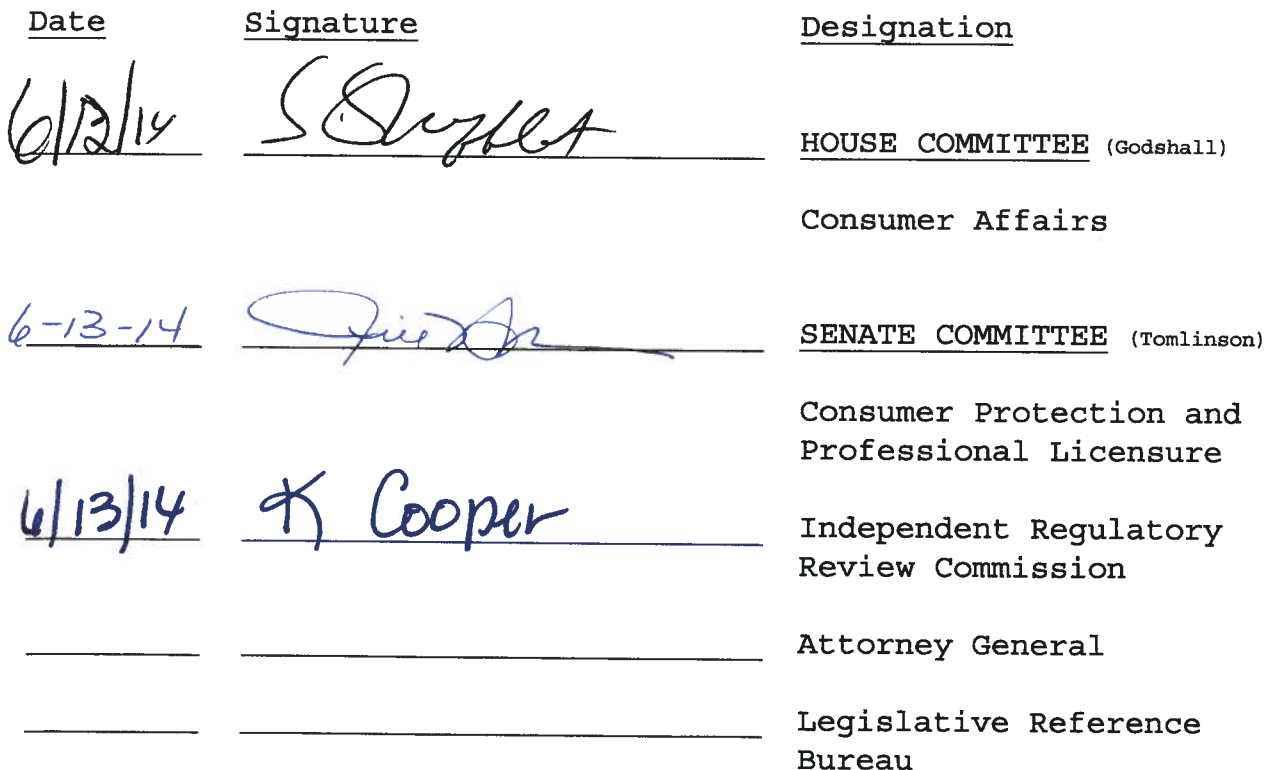 Date Signature Designation
HOUSE COMMITTEE (Godshall)
Consumer Affairs
6-13-14 SENATE COMMITTEE (Tomlinson)
Consumer Protection and
Professional Licensure
6/13/14 K Cooper Independent Regulatory
Review Commission
Attorney General
Legislative Reference
Bureau